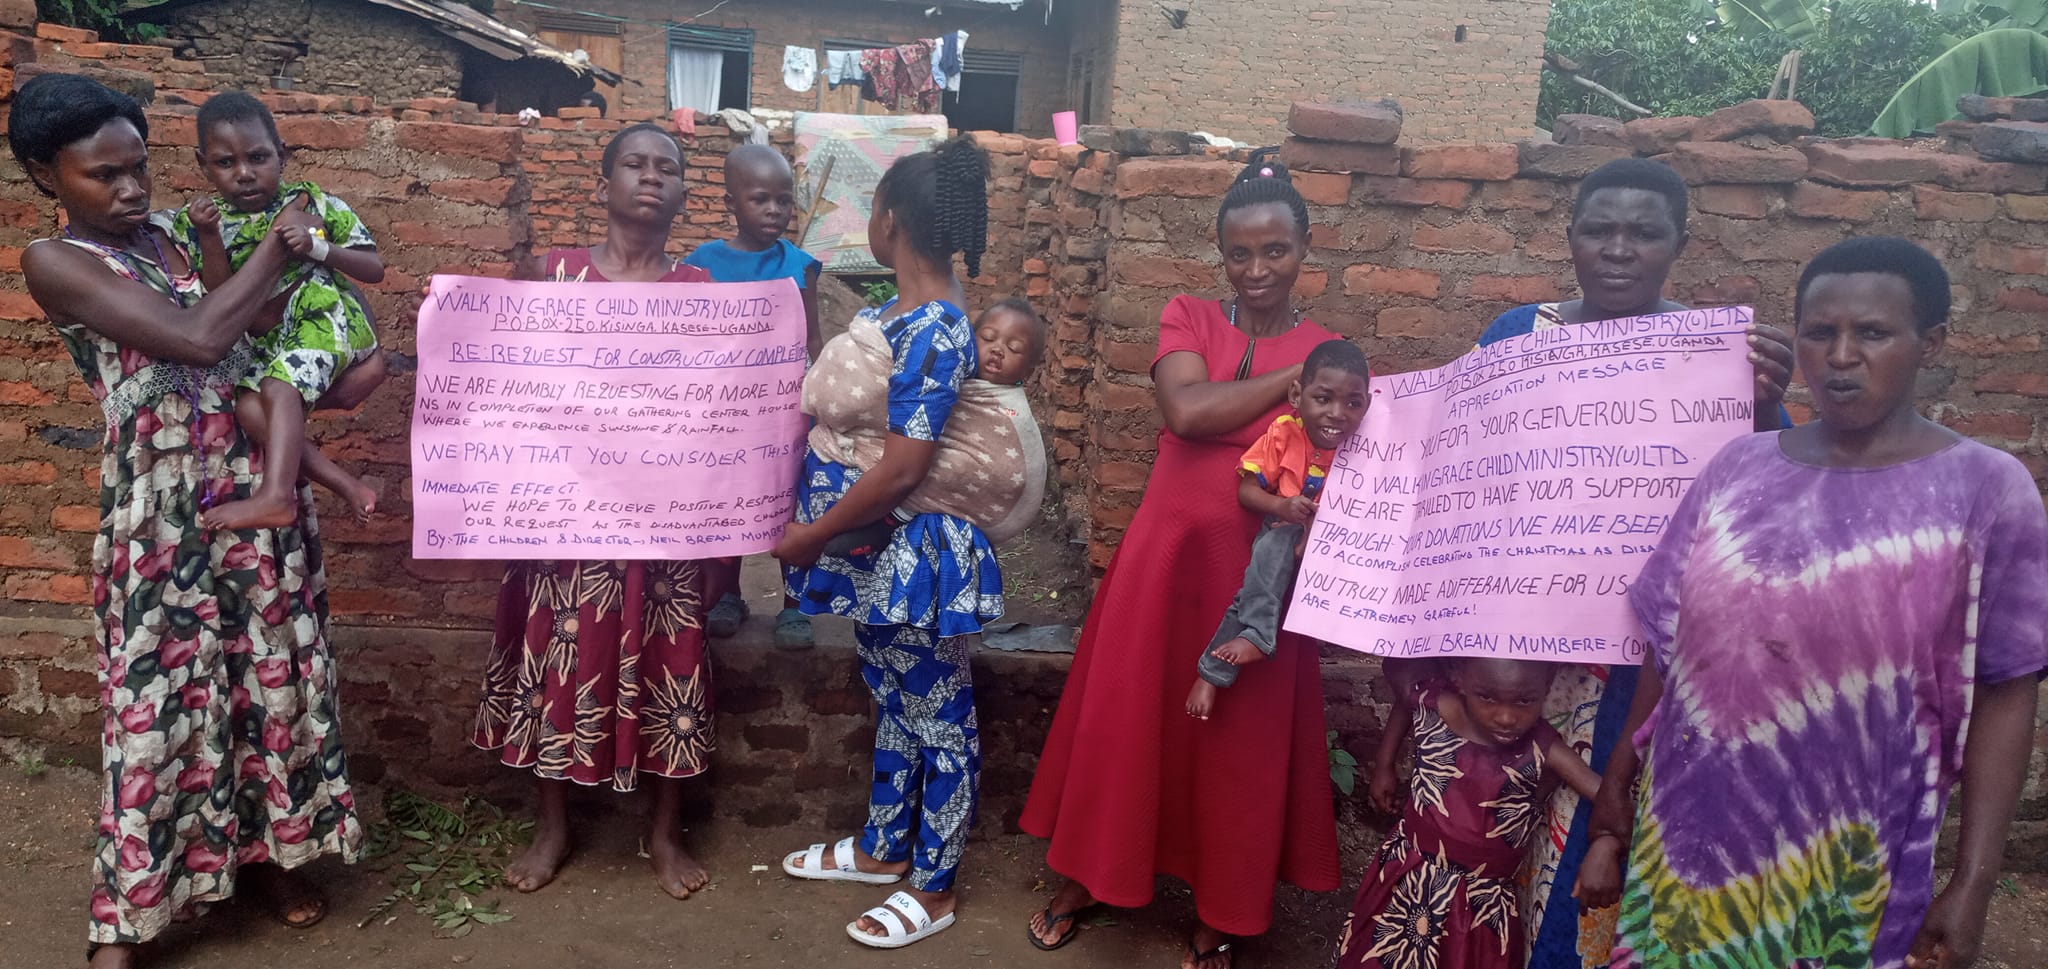 WALK IN GRACE CHILD MINISTRY (U) LTD-
P.O.BOX-250, KISINGA, KASESE-UGANDA
RE: REQUEST FOR CONSTRUCTION COMPLETE
WE ARE HUMBLY REQUESTING FOR MORE DONA
NS IN COMPLETION OF OUR GATHERING CENTER HOUSE
WHERE WE EXPERIENCE SUNSHINE & RAINFALL.
WE PRAY THAT YOU CONSIDER THIS
IMMEDIATE EFFECT.
WE HOPE TO RECIEVE POSITIVE RESPONSE
OUR REQUEST AS THE DISADVANTABED CHILDRE
BY: THE CHILDREN & DIRECTOR-, NEIL BREAN MUMBE
WALK IN GRACE CHILD MINISTRY (U) LTD
P.O.BOX 250 KISINGA, KASESE, UGANDA
APPRECIATION MESSAGE
THANK YOU FOR YOUR GENEROUS DONATION
S TO WALK IN GRACE CHILD MINISTRY (U) LTD.
WE ARE THRILLED TO HAVE YOUR SUPPORT.
THROUGH YOUR DONATIONS WE HAVE BEEN
TO ACCOMPLISH CELEBRATING THE CHRISTMAS AS DISA
YOU TRULY MADE A DIFFERANCE FOR US
ARE EXTREMELY GRATEFUL!
BY NEIL BREAN MUMBERE - (DI
FILA
F